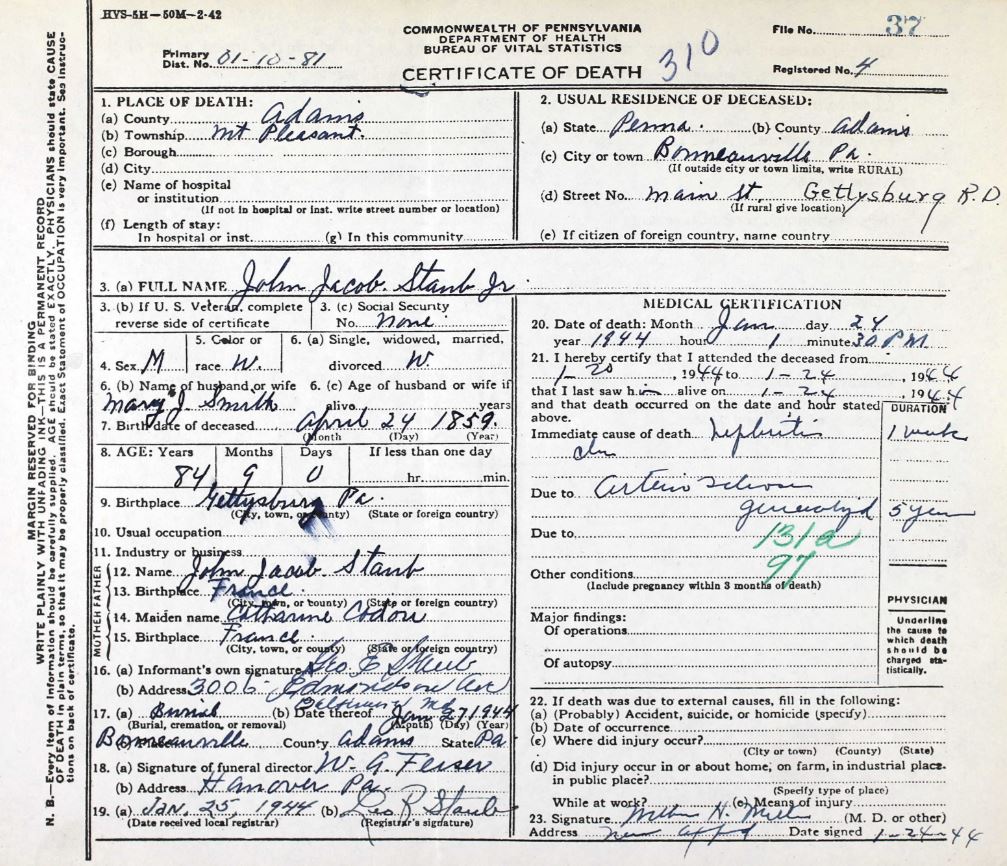 HVS-5H-50M-2-42
COMMONWEALTH OF PENNSYLVANIA
DEPARTMENT OF HEALTH
BUREAU OF VITAL STATISTICS
File No. 37
Primary Dist. No. 01-10-81
CERTIFICATE OF DEATH 310
Registered No. 4
MARGIN RESERVED FOR BINDING
WRITE PLAINLY WITH UNFADING INK—THIS IS A PERMANENT RECORD
N. B.—Every item of information should be carefully supplied. AGE should be stated EXACTLY. PHYSICIANS should state CAUSE
OF DEATH in plain terms, so that it may be properly classified. Exact Statement of OCCUPATION is very important. See Instruc-
tions on back of certificate.
1. PLACE OF DEATH:
(a) County Adams
(b) Township Mt Pleasant.
(c) Borough
(d) City
(e) Name of hospital
or institution
(If not in hospital or inst. write street number or location)
(f) Length of stay:
In hospital or inst. (g) In this community
2. USUAL RESIDENCE OF DECEASED:
(a) State Penna. (b) County Adams
(c) City or town Bonneauville Pa.
(If outside city or town limits, write RURAL)
(d) Street No. Main St. Gettysburg R.D.
(If rural give location)
(e) If citizen of foreign country, name country
3. (a) FULL NAME John Jacob Staub Jr
3. (b) If U. S. Veteran, complete
reverse side of certificate
3. (c) Social Security
No. none
4. Sex M
5. Color or
race W.
6. (a) Single, widowed, married,
divorced W.
6. (b) Name of husband or wife
Mary J. Smith
6. (c) Age of husband or wife if
alive years
7. Birth date of deceased April 24 1859.
(Month) (Day) (Year)
8. AGE: Years Months Days If less than one day
84 9 0 hr. min.
9. Birthplace Gettysburg Pa.
(City, town, or county) (State or foreign country)
10. Usual occupation
11. Industry or business
FATHER
12. Name John Jacob Staub
13. Birthplace France.
(City, town, or county) (State or foreign country)
MOTHER
14. Maiden name Catharine Codori
15. Birthplace France.
(City, town, or county) (State or foreign country)
16. (a) Informant's own signature Geo E Staub
(b) Address 3006 Edmondson Ave
Baltimore Md
17. (a) Burial (b) Date thereof Jan 27 1944
(Burial, cremation, or removal) (Month) (Day) (Year)
Bonneauville County Adams State Pa
18. (a) Signature of funeral director W. A. Feiser
(b) Address Hanover Pa.
19. (a) Jan. 25, 1944 (b) Leo R Staub
(Date received local registrar) (Registrar's signature)
MEDICAL CERTIFICATION
20. Date of death: Month Jan day 24
year 1944 hour 1 minute 30 P M.
21. I hereby certify that I attended the deceased from
1-20, 1944 to 1-24, 1944
that I last saw him alive on 1-24, 1944
and that death occurred on the date and hour stated
above.
DURATION
Immediate cause of death Nephritis 1 week
Due to Arterio Sclerosis
generalized 5 years
Due to 131a
97
Other conditions
(Include pregnancy within 3 months of death)
Major findings:
Of operations
Of autopsy
PHYSICIAN
Underline
the cause to
which death
should be
charged sta-
tistically.
22. If death was due to external causes, fill in the following:
(a) (Probably) Accident, suicide, or homicide (specify)
(b) Date of occurrence
(c) Where did injury occur?
(City or town) (County) (State)
(d) Did injury occur in or about home, on farm, in industrial place.
in public place?
(Specify type of place)
While at work? (e) Means of injury
23. Signature H. (M. D. or other)
Address New Oxford Date signed 1-24-44